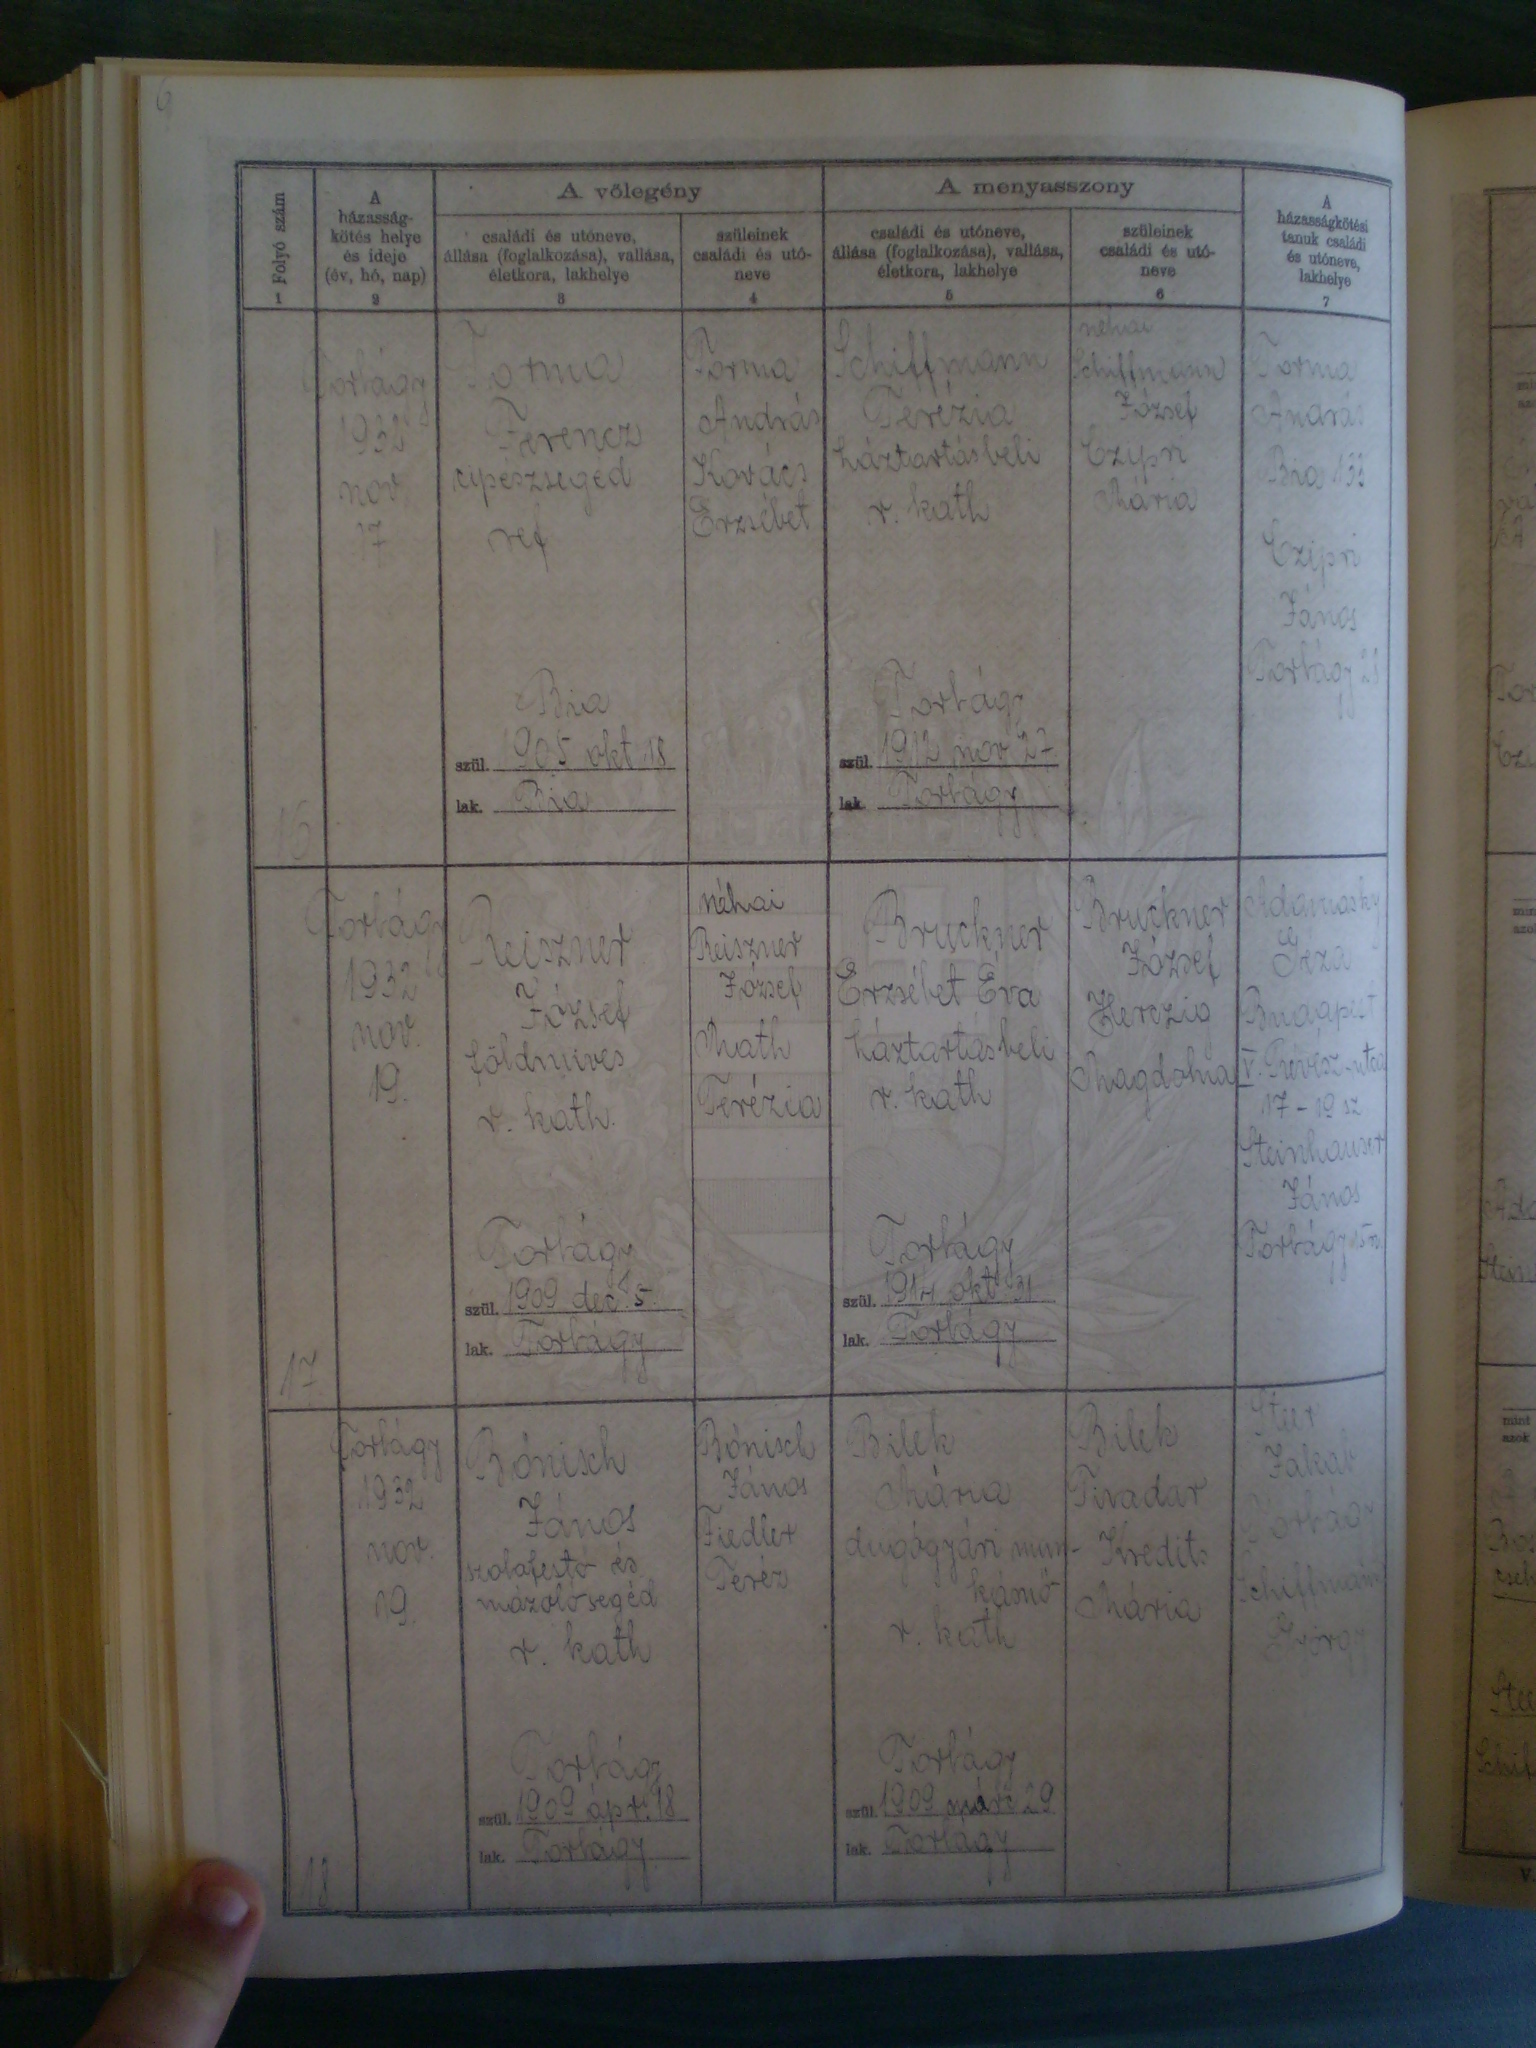 6
Folyó szám
1
A
házasság-
kötés helye
és ideje
(év, hó, nap)
2
A vőlegény
családi és utóneve,
állása (foglalkozása), vallása,
életkora, lakhelye
3
szüleinek
családi és utó-
neve
4
A menyasszony
családi és utóneve,
állása (foglalkozása), vallása,
életkora, lakhelye
5
szüleinek
családi és utó-
neve
6
A
házasságkötési
tanuk családi
és utóneve,
lakhelye
7
16
Torbágy
1932
nov
17
Torma
Ferencz
cipészsegéd
ref
Bia
szül. 1905 okt. 18
lak. Bia
Torma
András
Kovács
Erzsébet
Schiffmann
Terézia
háztartásbeli
r. kath
Torbágy
szül. 1912 nov 27.
lak. Torbágy
néhai
Schiffmann
József
Czipri
Mária
Torma
András
Bia 133
Czipri
János
Torbágy 28
17
Torbágy
1932
nov.
19.
Reiszner
József
földmíves
r. kath.
Torbágy
szül. 1909 dec. 5.
lak. Torbágy
néhai
Reiszner
József
Math
Terézia
Bruckner
Erzsébet Éva
háztartásbeli
r. kath
Torbágy
szül. 1914 okt. 31
lak. Torbágy
Bruckner
József
Herczig
Magdolna
Géza
Budapest
V. Révész-utca
17-19 sz
Steinhauser
János
Torbágy
18
Torbágy
1932
nov.
19.
Bönisch
János
szobafestő és
mázolósegéd
r. kath
Torbágy
szül. 1909 ápr. 18
lak. Torbágy
Bönisch
János
Fiedler
Teréz
Bilek
Mária
dugógyári mun-
kásnő
r. kath
Torbágy
szül. 1909 márc 29
lak. Torbágy
Bilek
Tivadar
Kredits
Mária
Steer
Jakab
Torbágy
Schiffmann
György